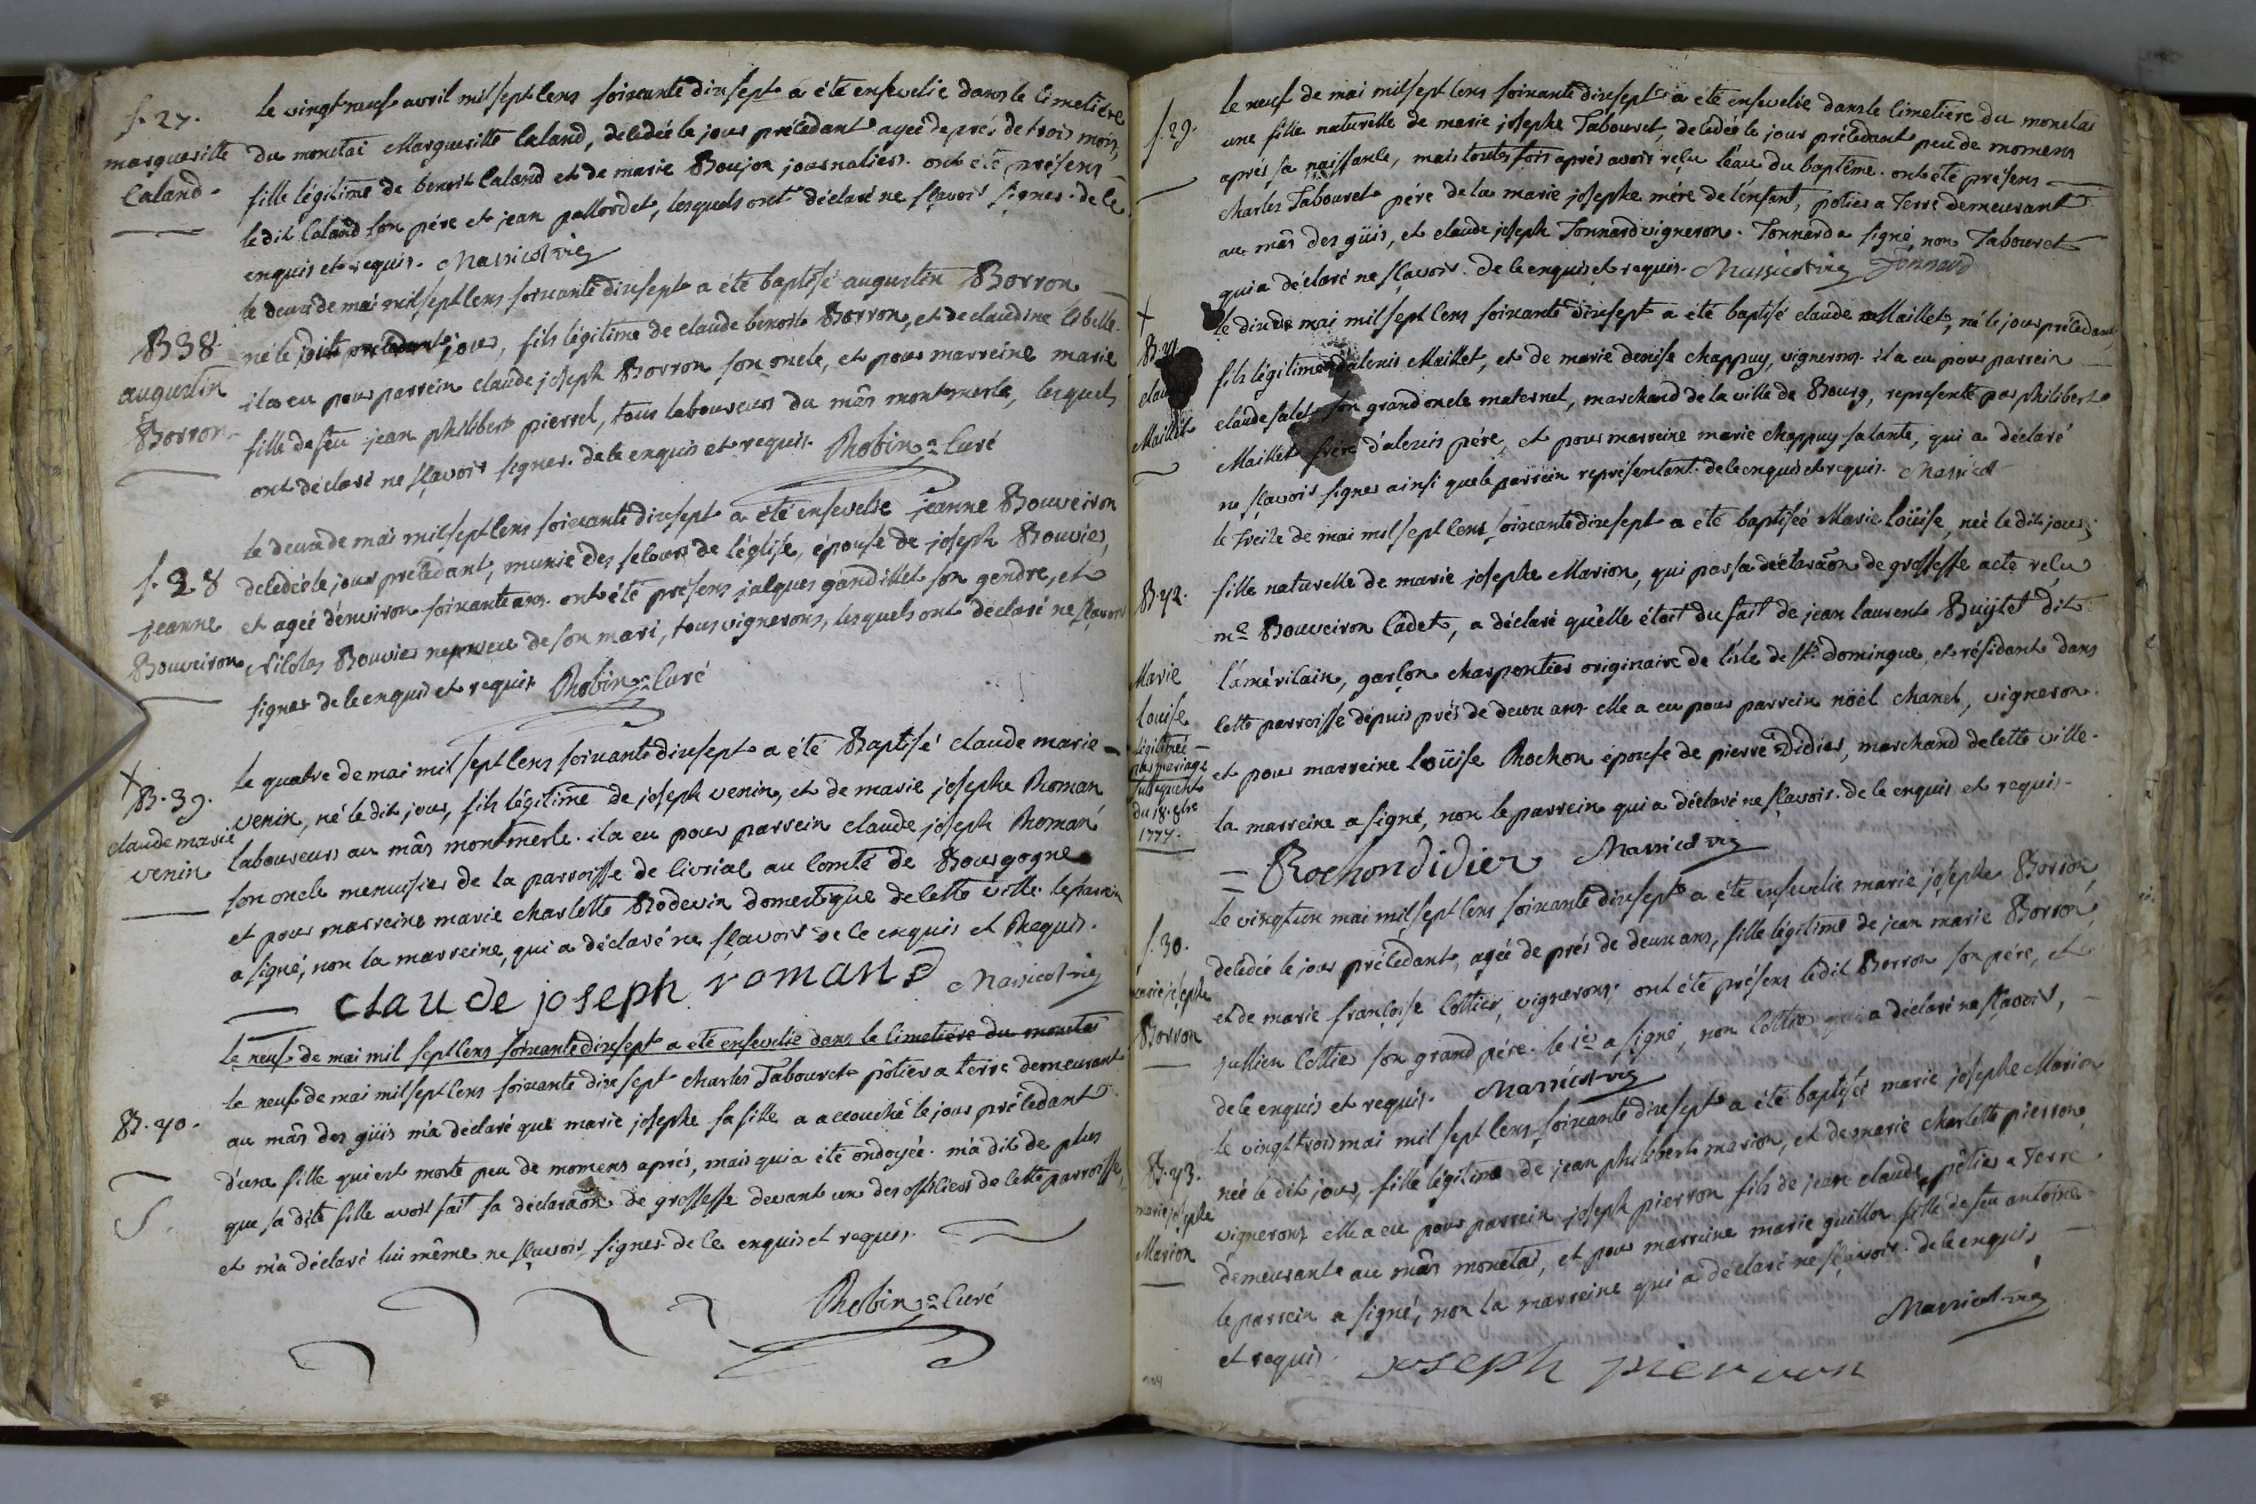 s. 27.
margueritte
Caland.
le vingt neuf avril mil sept cens soixante dix sept a été ensevelie dans le cimetière
du monetai Margueritte Caland, decedée le jour précedant agée de prés de trois mois,
fille légitime de benoit Caland et de marie Boujon journaliers. ont été présens
le dit Caland son pére et jean pallordet, lesquels ont déclaré ne sçavoir signer. de ce
enquis et requis. Massicot vic
B 38.
augustin
Borron
le deux de mai mil sept cens soixante dix sept a été baptisé augustin Borron
né le jour, fils légitime de claude benoit Borron, et de claudine
il a eu pour parrein claude joseph Borron son oncle, et pour marreine marie
fille de feu jean philibert pierrel, tous laboureurs du mâs montmerle, lesquels
ont déclaré ne sçavoir signer. de ce enquis et requis. Robin curé
s. 28
jeanne
Bouveiron
le deux de mai mil sept cens soixante dix sept a été ensevelie jeanne Bouveiron
decedée le jour précedant, munie des secours de l'église, épouse de joseph Bouvier,
et agée d'environ soixante ans. ont été présens jacques gandillet son gendre, et
Nicolas Bouvier neuveu de son mari, tous vignerons, lesquels ont déclaré ne sçavoir
signer de ce enquis et requis Robin curé
B. 39.
claude marie
venin
le quatre de mai mil sept cens soixante dix sept a été Baptisé claude marie
venin, né le dit jour, fils légitime de joseph venin, et de marie josephe Roman,
laboureurs au mâs montmerle. il a eu pour parrein claude joseph Roman
son oncle menuisier de la parroisse de civrial au Comté de Bourgogne
et pour marreine marie charlotte Rodevin domestique de cette ville. le parrein
a signé, non la marreine, qui a déclaré ne sçavoir de ce enquis et Requis.
claude joseph roman Massicot vic
le neuf de mai mil sept cens soixante dix sept a été ensevelie dans le cimetière du monetai
B. 40.
le neuf de mai mil sept cens soixante dix sept charles Tabouret pôtier a terre demeurant
au mâs des güis m'a déclaré que marie josephe sa fille a accouché le jour précedant
d'une fille qui est morte peu de momens aprés, mais qui a été ondoyée. m'a dit de plus
que sa dite fille avoit fait sa déclaraõn de grossesse devant un des officiers de cette parroisse,
et m'a déclaré lui même ne sçavoir signer de ce enquis et requis.
Robin curé
s. 29.
le neuf de mai mil sept cens soixante dix sept a été ensevelie dans le cimetière du monetai
une fille naturelle de marie josephe Tabouret, decedée le jour précedant peu de momens
aprés sa naissance, mais toutes fois aprés avoir reçu l'eau du baptême. ont été présens
charles Tabouret pére de la marie josephe mére de l'enfant, potier a Terre demeurant
au mâs des güis, et claude joseph Tonnard vigneron. Tonnard a signé, non Tabouret
qui a déclaré ne sçavoir. de ce enquis et requis. Massicot vic Tonnard
B. 41
Maillet
le dix de mai mil sept cens soixante dix sept a été baptisé claude Maillet, né le jour précedant,
fils légitime d'alexis Maillet, et de marie denise chappuy, vignerons. il a eu pour parrein
claude salet son grand oncle maternel, marchand de la ville de Bourg, representé par philibert
Maillet frére d'alexis pére, et pour marreine marie chappuy sa tante, qui a déclaré
ne sçavoir signer ainsi que le parrein représentant. de ce enquis et requis. Massicot
B. 42.
Marie
Louise
légitimée
par mariage
subsequent
du 18. 8bre
1777.
le treize de mai mil sept cens soixante dix sept a été baptisée Marie Loüise, née le dit jour,
fille naturelle de marie josephe Marion, qui par sa déclaraõn de grossesse acte reçu
me Bouveiron Cadet, a déclaré qu'elle étoit du fait de jean laurent Buijtet dit
l'américain, garçon charpentier originaire de l'isle de St. domingue, et résidant dans
cette parroisse dépuis prés de deux ans. elle a eu pour parrein nöel chanel, vigneron
et pour marreine loüise Rochon épouse de pierre Didier, marchand de cette ville.
la marreine a signé, non le parrein qui a déclaré ne sçavoir. de ce enquis et requis.
Rochon didier Massicot vic
s. 30.
marie josephe
Borron
le vingt un mai mil sept cens soixante dix sept a été ensevelie marie josephe Borron,
decedée le jour précedant, agée de prés de deux ans, fille légitime de jean marie Borron,
et de marie françoise Cottier, vignerons. ont été présens le dit Borron son pére, et
jullien Cottier son grand pére. le 1er a signé, non Cottier qui a déclaré ne sçavoir,
de ce enquis et requis. Massicot vic
B. 43.
marie josephe
Marion
le vingt trois mai mil sept cens soixante dix sept a été baptisée marie josephe Marion
née le dit jour, fille légitime de jean philibert marion, et de marie charlotte pierron,
vignerons. elle a eu pour parrein joseph pierron fils de jean claude, pôtier a Terre
demeurante au mâs monetai, et pour marreine marie guillon fille de feu antoine.
le parrein a signé, non la marreine qui a déclaré ne sçavoir. de ce enquis
et requis. Massicot vic
joseph pierron